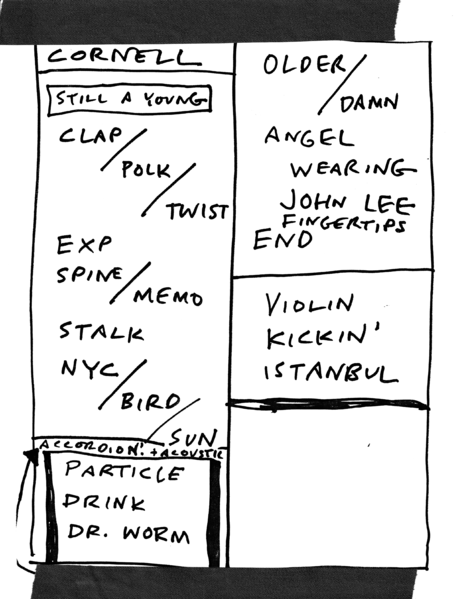 CORNELL
STILL A YOUNG
CLAP/
POLK/
TWIST
EXP
SPINE/
MEMO
STALK
NYC/
BIRD/
SUN
ACCORDION! + ACOUSTIC
PARTICLE
DRINK
DR. WORM
OLDER/
DAMN
ANGEL
WEARING
JOHN LEE
FINGERTIPS
END
VIOLIN
KICKIN'
ISTANBUL